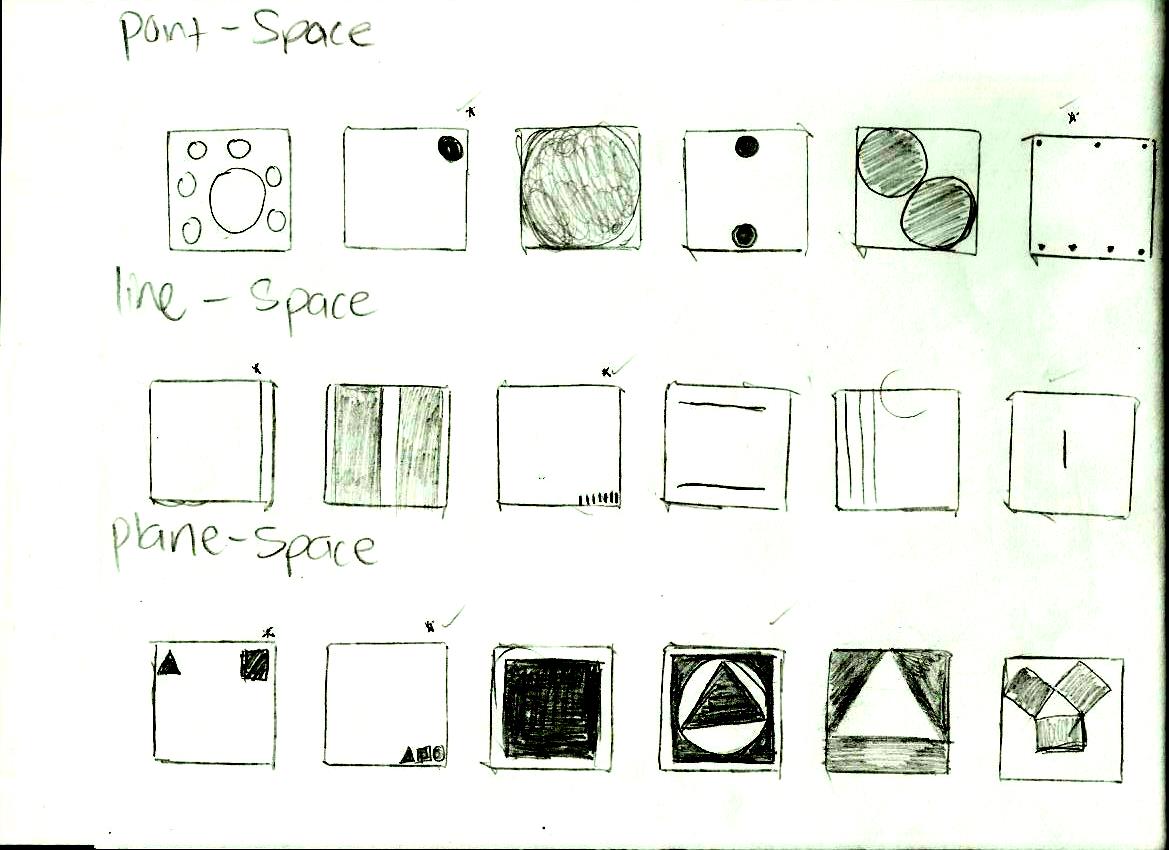 pont - Space
line - Space
plane - Space